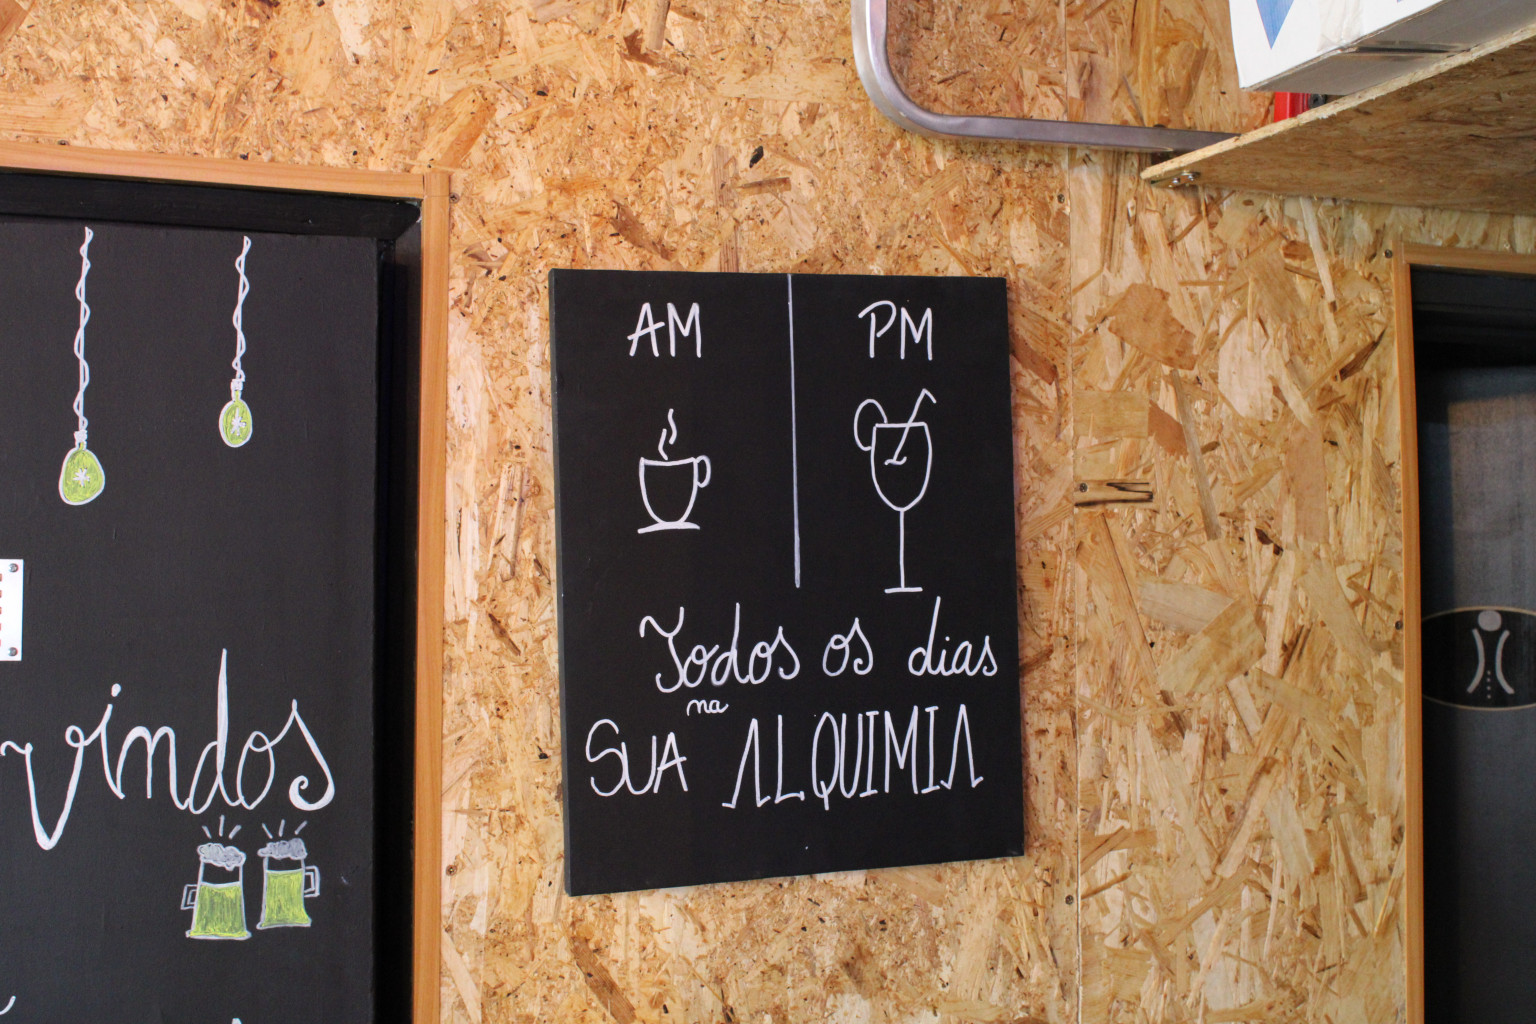 AM
PM
Todos os dias
na
SUA ALQUIMIA
vindos